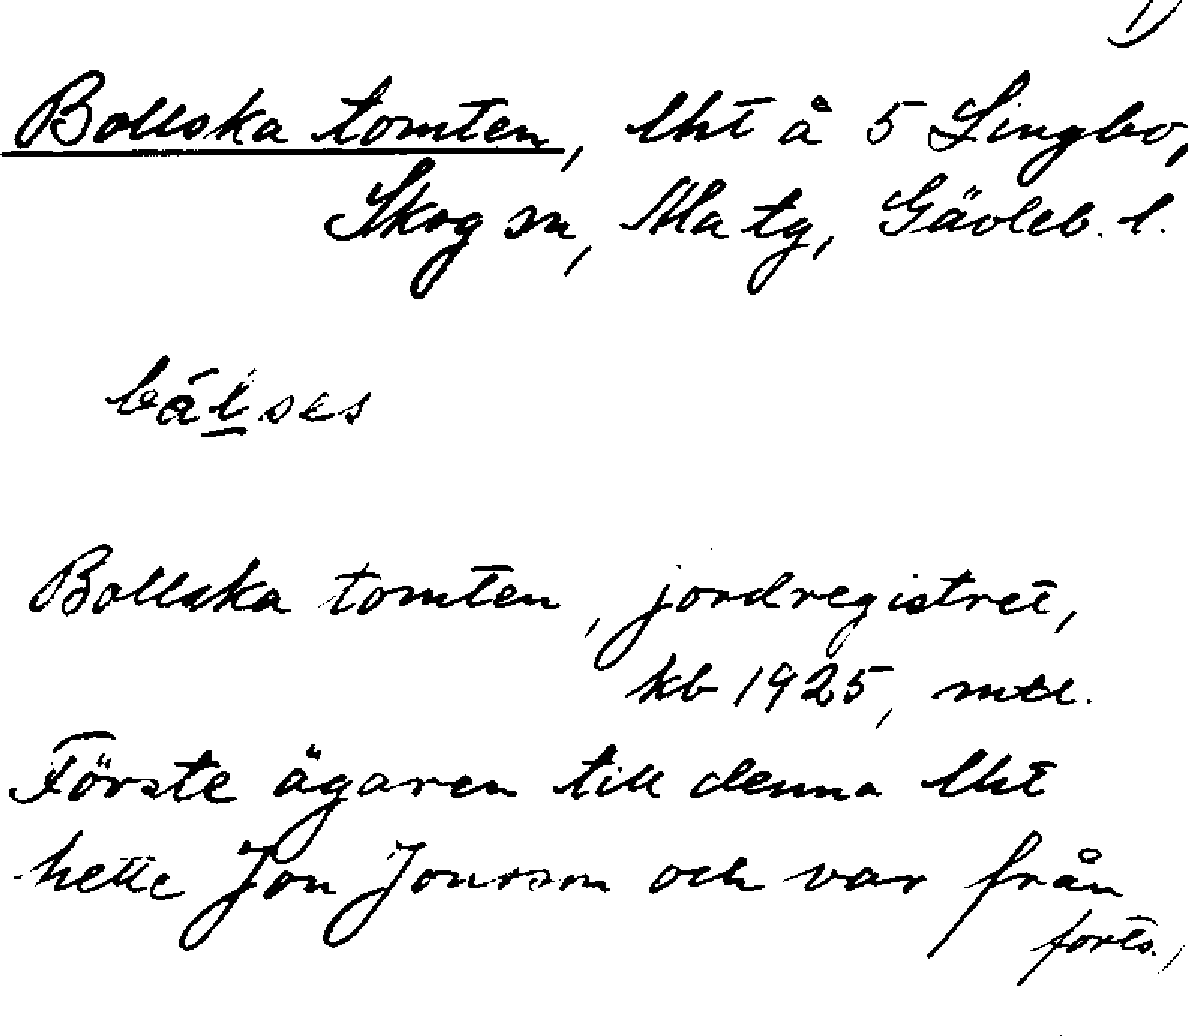 1)
Bollska tomten, lht å 5 Lingbo,
Skog sn, Ala tg, Gävleb. l.
bålses
Bollska tomten, jordregistret,
kb 1925, mtl.
Förste ägaren till denna lht
hette Jon Jonsson och var från
forts.,